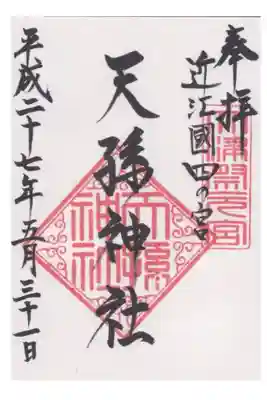 奉拝
近江國四の宮
天孫神社
平成二十七年五月三十一日
天孫
神社